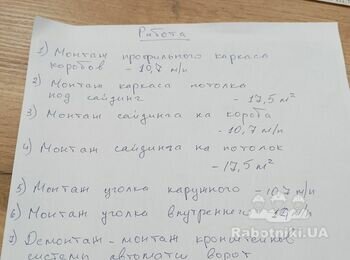 Работа
1) Монтаж профильного каркаса
коробов – 10,7 м/п
2) Монтаж каркаса потолка
под сайдинг – 17,5 м²
3) Монтаж сайдинга на короба
– 10,7 м/п
4) Монтаж сайдинга на потолок
– 17,5 м²
5) Монтаж уголка наружного – 10,7 м/п
6) Монтаж уголка внутреннего
7) Демонтаж – монтаж кронштейнов
системы автомати ворот
Rabotniki.UA